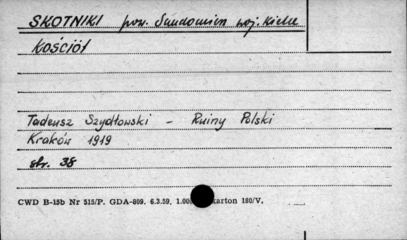 SKOTNIKI pow. Sandomierz woj. Kielce
Kościół
Tadeusz Szydłowski - Ruiny Polski
Kraków 1919
str. 38
CWD B-15b Nr 515/P. GDA-809. 6.3.59. 1.00 karton 180/V.